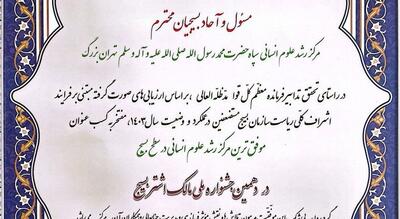 مسئول و آحاد بسیجیان محترم
مرکز رشد علوم انسانی سپاه حضرت محمد رسول الله صلی الله علیه و آله و سلم تهران بزرگ
در راستای تحقق تدابیر فرمانده معظم کل قوا مدظله العالی ، براساس ارزیابی‌های صورت گرفته مبتنی بر فرایند
اشراف کلی ریاست سازمان بسیج مستضعفین در عملکرد و وضعیت سال ۱۴۰۳، مفتخر به کسب عنوان
موفق ترین مرکز رشد علوم انسانی در سطح بسیج
در دهمین جشنواره ملی مالک اشتر بسیج